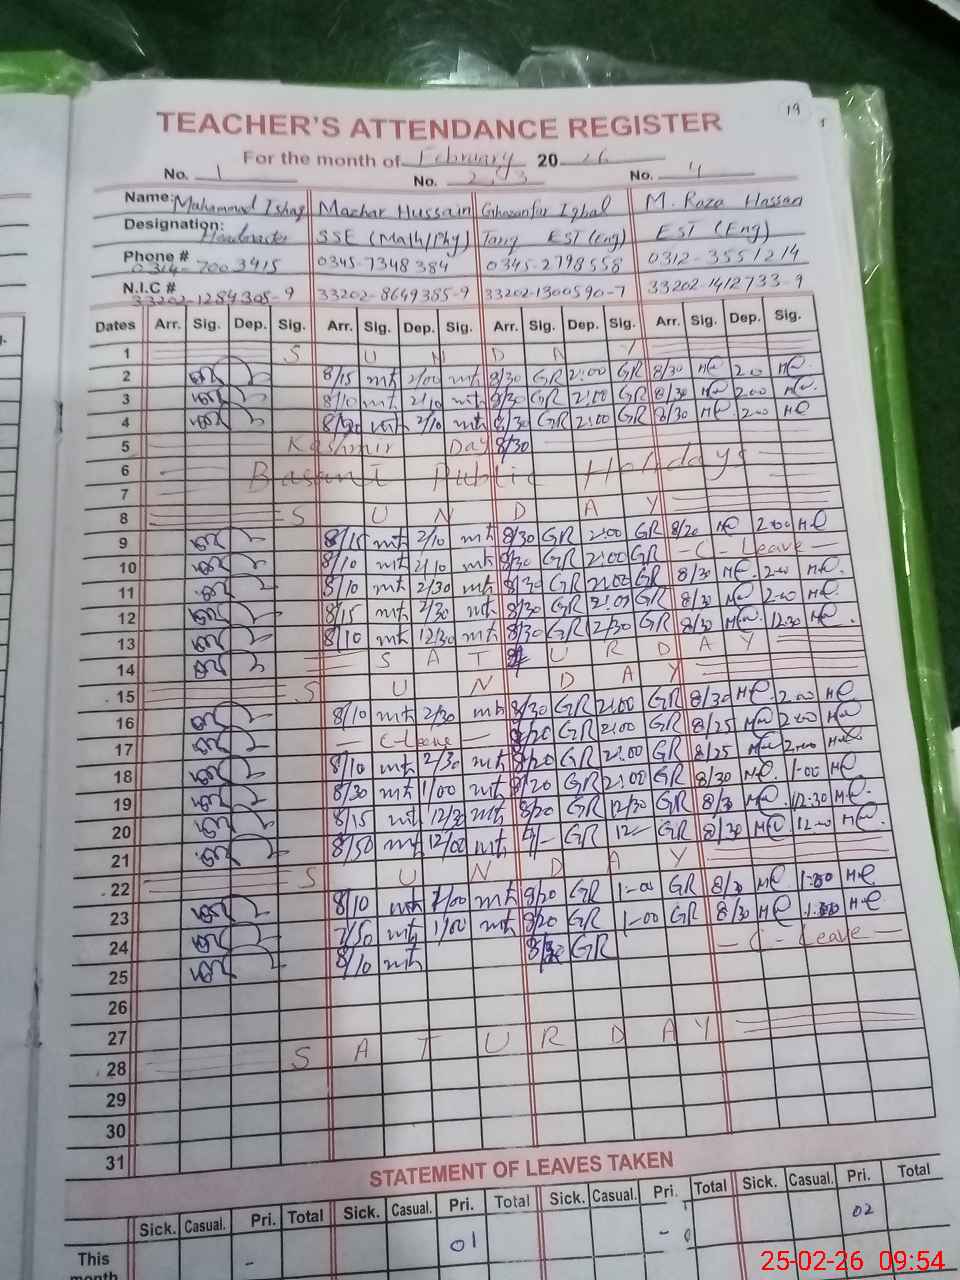 19
TEACHER'S ATTENDANCE REGISTER
For the month of February 20 26
No. 1 No. 2,3 No. 4
Name: Muhammad Ishaq Mazhar Hussain Ghazanfar Iqbal M. Raza Hassan
Designation: Headmaster SSE (Math/Phy) Tariq EST (Eng) EST (Eng)
Phone # 0314-7003415 0345-7348384 0345-2798558 0312-3551214
N.I.C # 33202-1284305-9 33202-8649385-9 33202-1300590-7 33202-1412733-9
Dates Arr. Sig. Dep. Sig. Arr. Sig. Dep. Sig. Arr. Sig. Dep. Sig. Arr. Sig. Dep. Sig.
1 S U N D A Y
2 8/15 mh 2/00 mh 8/30 GR 2:00 GR 8/30 2.00
3 8/10 mh 2/10 mh 8/30 GR 2:00 GR 8/30 2.00
4 mh 2/10 mh 8/30 GR 2:00 GR 8/30 2.00
5 Kashmir Day 8/30
6 Basant Public Holidays
7
8 S U N D A Y
9 8/15 mh 2/10 mh 8/30 GR 2:00 GR 8/20 2.00
10 8/10 mh 2/10 mh 8/30 GR 2:00 GR - C - Leave -
11 8/10 mh 2/30 mh 8/30 GR 2:00 GR 8/30 2.00
12 8/15 mh 2/30 mh 8/30 GR 2:00 GR 8/30 2.00
13 8/10 mh 12/30 mh 8/30 GR 12/30 GR 8/30 12.30
14 S A T U R D A Y
15 S U N D A Y
16 8/10 mh 2/30 mh 8/30 GR 2:00 GR 8/30 2.00
17 - C-Leave - 8/20 GR 2:00 GR 8/25 2.00
18 8/10 mh 2/30 mh 8/20 GR 2:00 GR 8/25 2.00
19 8/30 mh 1/00 mh 8/20 GR 2:00 GR 8/30 1-00
20 8/15 mh 12/30 mh 8/20 GR 12/30 GR 8/30 12:30
21 8/50 mh 12/00 mh 9/- GR 12- GR 8/30 12.00
22 S U N D A Y
23 8/10 mh 1/00 mh 8/20 GR 1:-00 GR 8/30
24 7/50 mh 1/00 mh 8/20 GR 1-00 GR 8/30
25 8/10 mh GR - C - Leave -
26
27
28 S A T U R D A Y
29
30
31
STATEMENT OF LEAVES TAKEN
Sick. Casual. Pri. Total Sick. Casual. Pri. Total Sick. Casual. Pri. Total Sick. Casual. Pri. Total
This month - 01 - 02
25-02-26 09:54